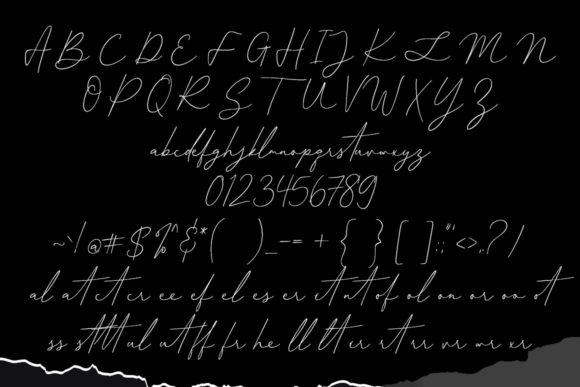 A B C D E F G H I J K L M N
O P Q R S T U V W X Y Z
abcdefghijklmnopqrstuvwxyz
0123456789
~`/@#$%^&*( )_-=+{ }[ ]:;"'<>,.?/
al at ct cr ee ef el es er ct nt of ol on or oo ot
ss st tt ul ut ff fr he ll lt er rt rr vr wr xr